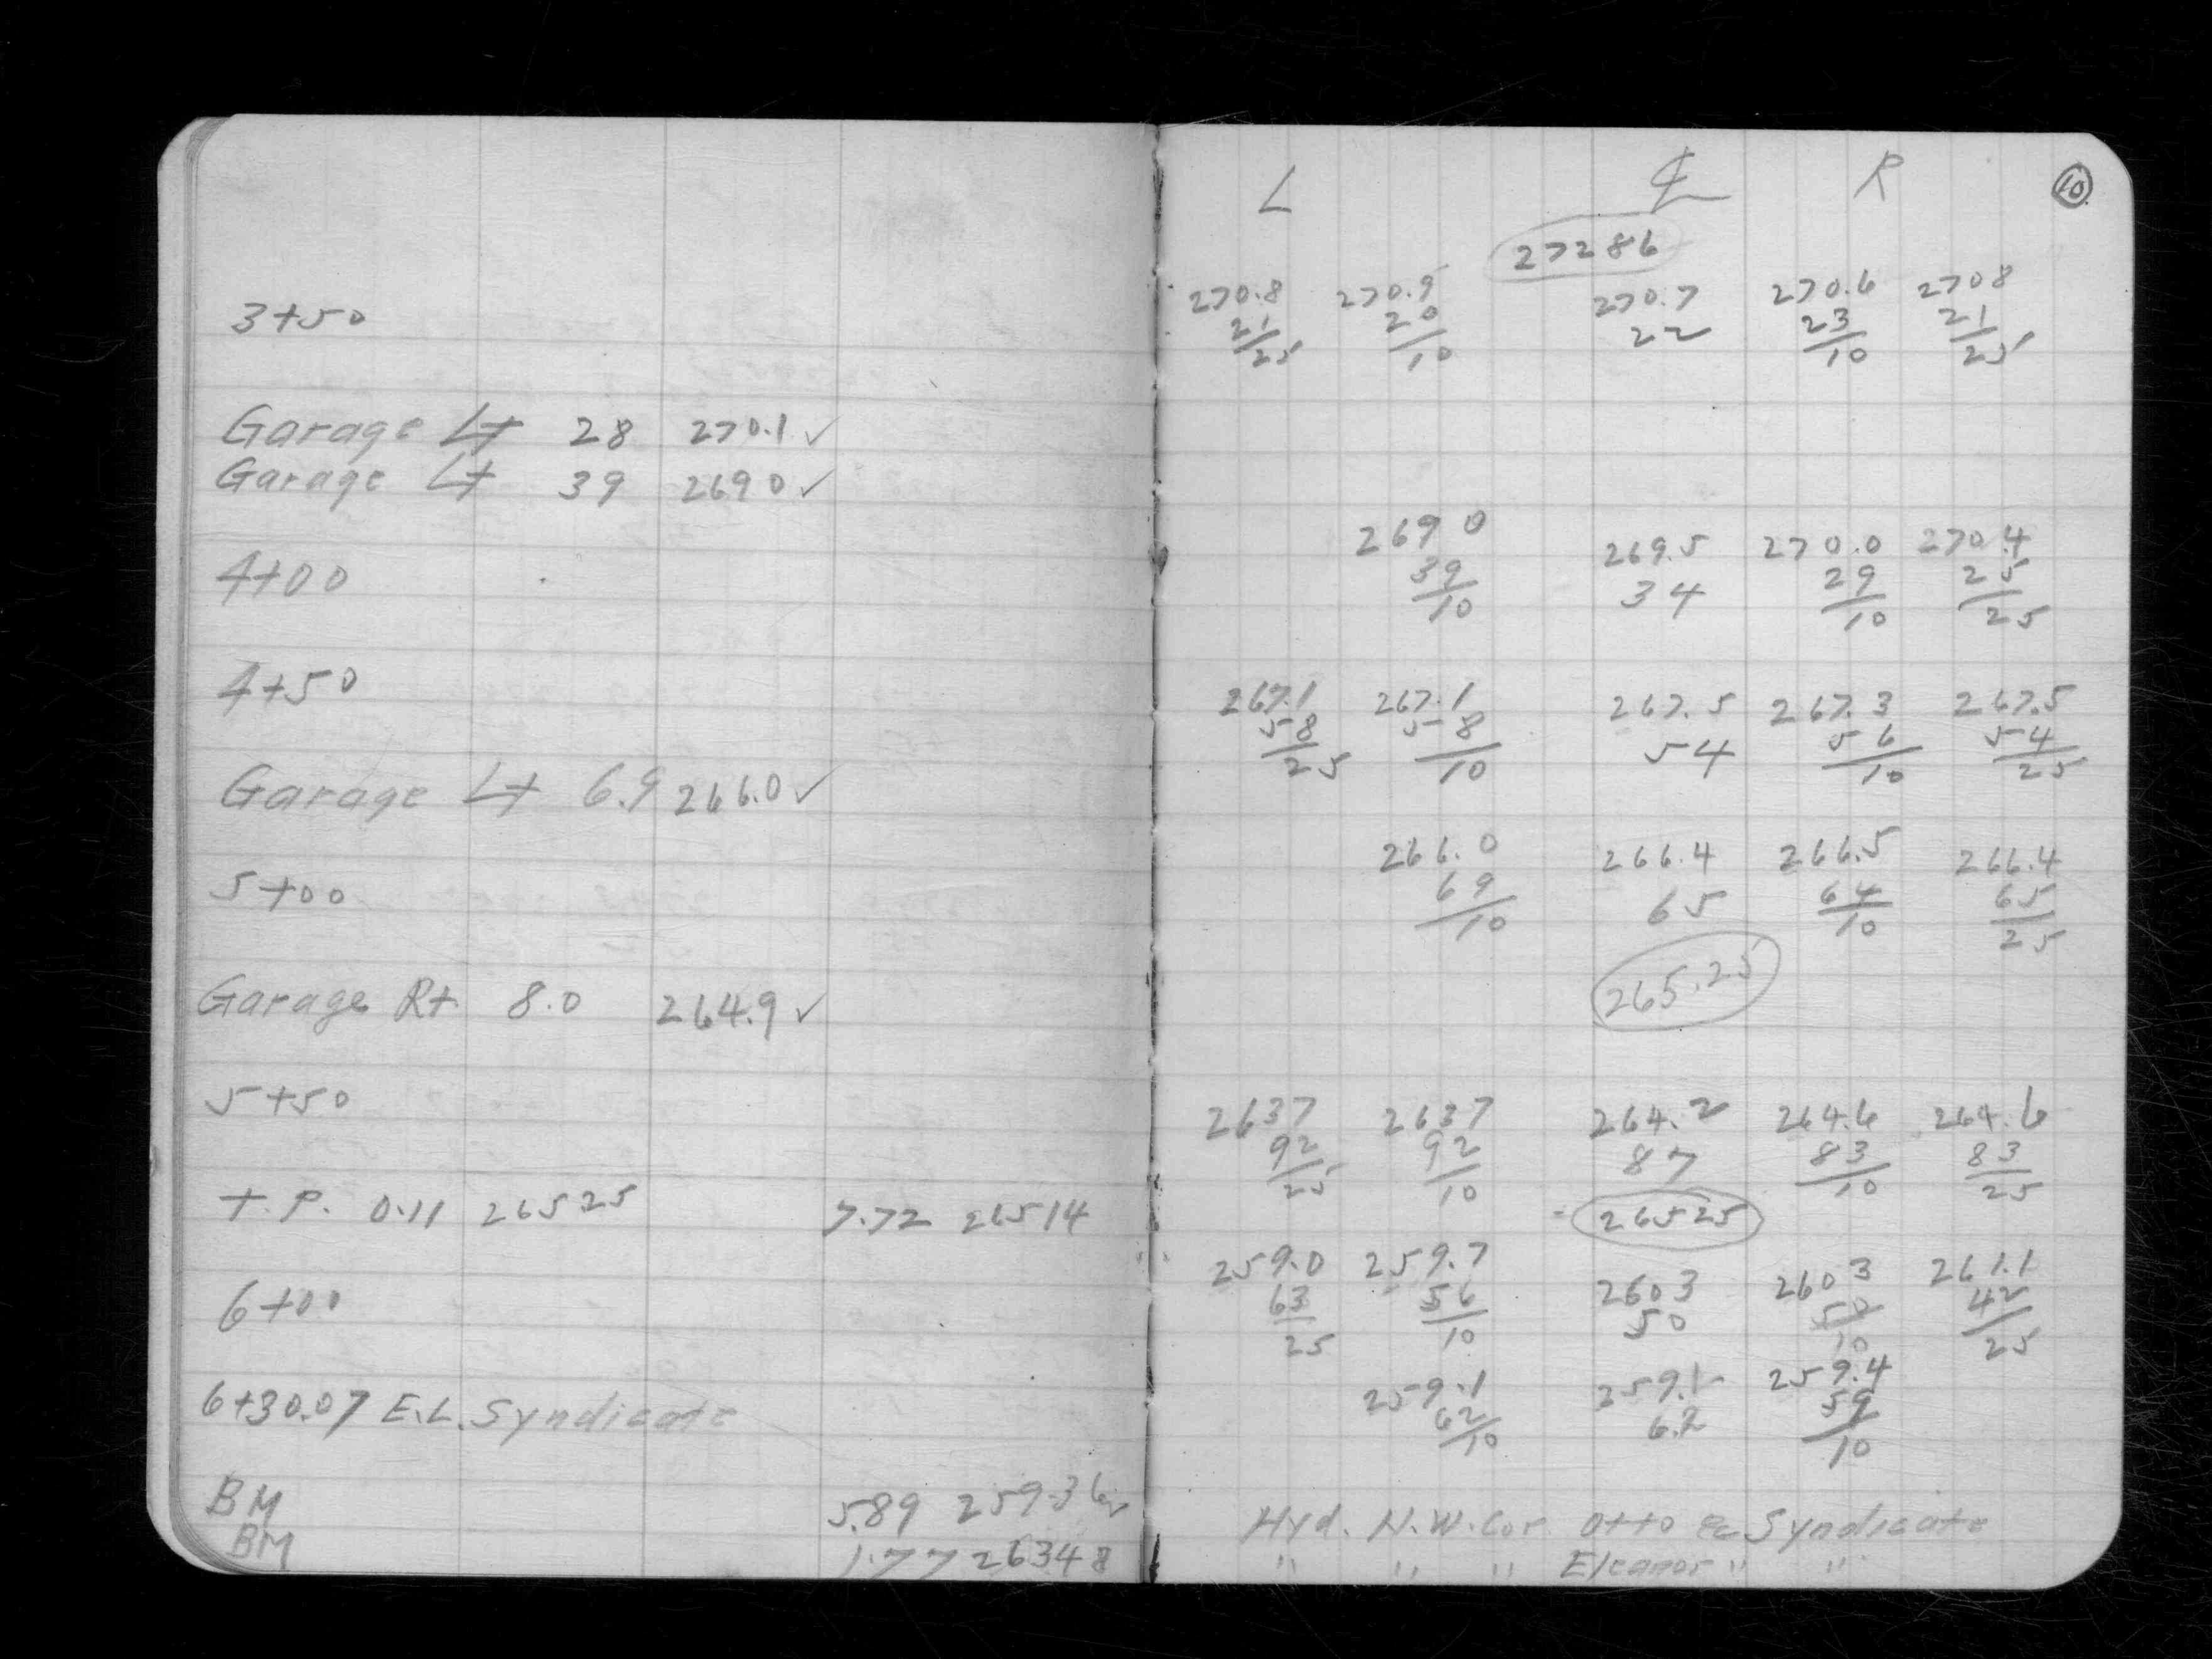 L ℄ R 10
27286
3+50 270.8 270.9 270.7 270.6 2708
21/25 20/10 22 23/10 21/25
Garage Lt 28 270.1 ✓
Garage Lt 39 269 0 ✓
4+00 269 0 269.5 270.0 270.4
39/10 34 29/10 25/25
4+50 267.1 267.1 267.5 267.3 267.5
58/25 58/10 54 56/10 54/25
Garage Lt 6.9 266.0 ✓
5+00 266.0 266.4 266.5 266.4
69/10 65 64/10 65/25
265.25
Garage Rt. 8.0 264.9 ✓
5+50 2637 2637 264.2 264.6 264.6
92/25 92/10 87 83/10 83/25
T.P. 0.11 265 25 7.72 265 14 265 25
6+00 259.0 259.7 260 3 260 3 261.1
63/25 56/10 50 50/10 42/25
6+30.07 E.L. Syndicate 259.1 259.1 259.4
62/10 6.2 59/10
BM 5.89 259.36 Hyd. N.W. Cor. Otto & Syndicate
BM 1.77 263 48 " " " Eleanor " "